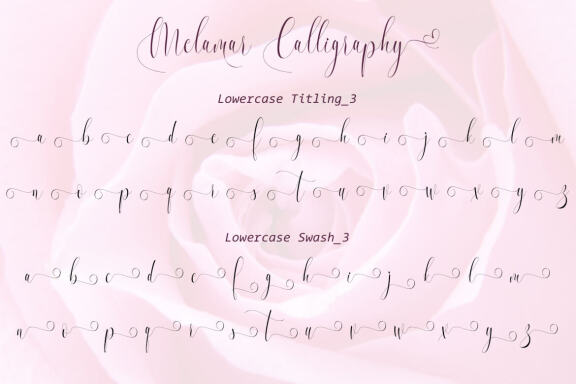 Melamar Calligraphy
Lowercase Titling_3
a b c d e f g h i j k l m
n o p q r s t u v w x y z
Lowercase Swash_3
a b c d e f g h i j k l m
n o p q r s t u v w x y z